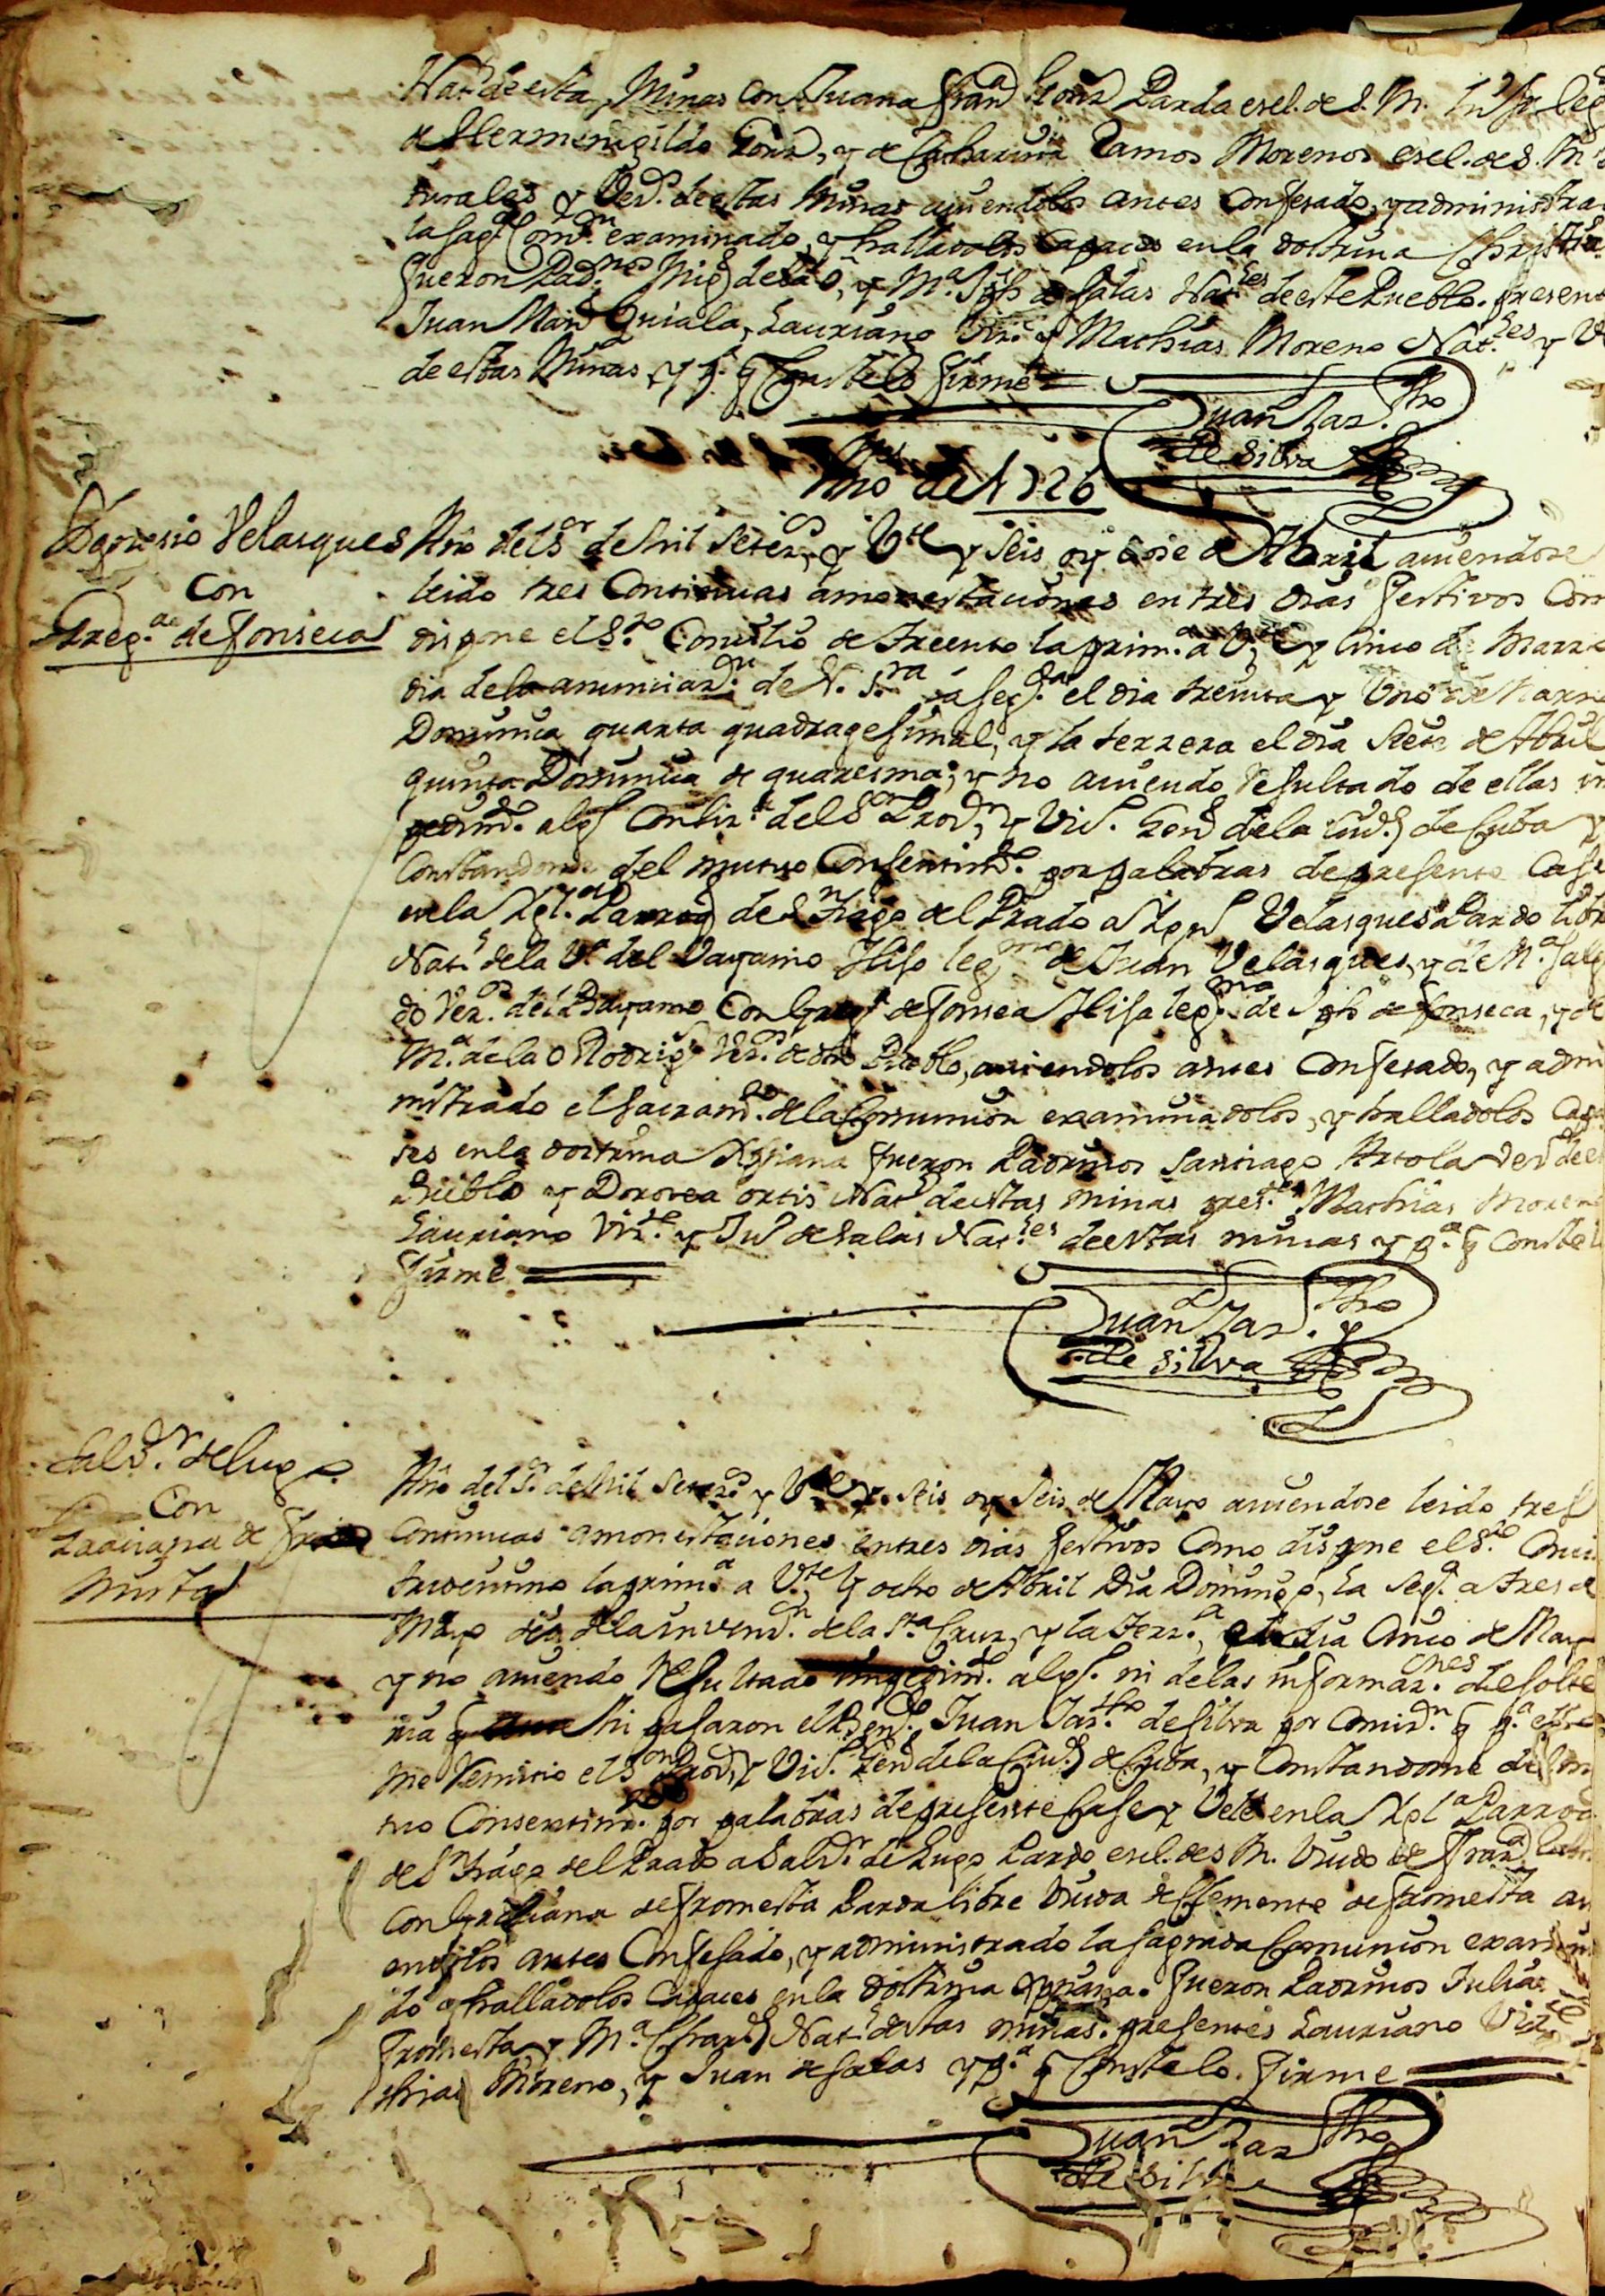 Nat.l de esta Minas Con Juana Fran.ca Gonz Parda escl. de S. M. leg
de Hermenegildo Gonz, y de Catharina Ramos Morenos escl. de S. M.
turales y Vez.s de estas Minas auiendolos antes Confesado, y administra
la sag.da Com.on examinado, y halladolos Capaces en la dottrina Christia
fueron Pad.nos Mig.l de la O, y M.a Jph de Salas Nat.les de este Pueblo. presen
Juan Man.l Quiala, Lauriano Viz.te y Mathias Moreno Nat.les y V
de estas Minas, y p.a q Conste lo firmé
Juan Laz. Tho
de Silva
Año de 1726
Velasques
Con
Greg.a de Fonseca
Año del S.r de Mil Setez.os y V.te y Seis oy dose de Abril auiendose
leido tres Continuas amonestaciones en tres dias festivos Com
dispone el S.to Consilio de Treento la prim.a a V.te y Cinco de Marzo
dia de la anunciaz.n de N. S.ra la seg.da el dia treinta y Uno de Marzo
Dominica quarta quadragesimal, y la terzera el dia Siete de Abril
quinta Dominica de quaresma, y no auiendo Resultado de ellas im
pedim.to alg.o Con liz.a del S.or Prov.r y Vic.o Gen.l de la Ciud.d de Cuba y
Constandome del mutuo Consentim.to por palabras de presente Case
en la Igl.a Parroq.l de S.n Tiago del Prado a Velasques Pardo libre
Nat.l de la V.a del Vayamo Hijo leg.mo de Juan Velasques, y de M.a Salg
do Vez.os del Bayamo Con Greg.a de fonseca Hija leg.ma de Jph de fonseca, y de
M.a de la O Rodrig.s Vez.os de dho Pueblo, auiendolos antes Confesado, y admi
nistrado el Sacram.to de la Comunion examinadolos, y halladolos Capa
ses en la dottrina Xptiana fueron Padrinos Santiago Arsola Vez.o de es
Pueblo y Dorotea ortis Nat.l de estas minas pres.tes Mathias Moreno
Lauriano Viz.te y Ju.o de Salas Nat.les de estas minas y p.a q Conste lo
firmé
Juan Laz. Tho
de Silva
Salv.r de Lugo
Con
Graciana de Fro
mesta
Año del S.r de Mil Setez.os y V.te y Seis oy Seis de Mayo auiendose leido tres
Continuas amonestaciones en tres dias festivos Como dispone el S.to Conci
tridentino la prim.a a V.te y ocho de Abril Dia Domingo, la Seg.da a tres de
Mayo dia de la invenz.n de la S.ta Cruz, y la Terz.a el dia Cinco de Mayo
y no auiendo Resultado impedim.to alg.o ni de las informaz.ones de solte
ria q pasaron el B.en.do Juan Laz. Tho de Silva por Comis.n q p.a ello
me Remitio el S.or Prov.r y Vic.o Gen.l de la Ciud.d de Cuba, y Constandome del mu
tuo Consentim.to por palabras de presente Case y Vele en la Igl.a Parroq
de S.n Tiago del Prado a Salv.r de Lugo Pardo escl. de S. M. Viudo de Fran.ca
Con Graciana de fromesta Parda libre Viuda de Clemente de fromesta au
endolos antes Confesado, y administrado la Sagrada Comunion examin
do y halladolos Capaces en la dottrina Xptiana. fueron Padrinos Julian
fromesta y M.a Nat.l de estas minas. presentes Lauriano Viz.te
thias Moreno, y Juan de Salas y p.a q Conste lo firme
Juan Laz Tho
de Silva